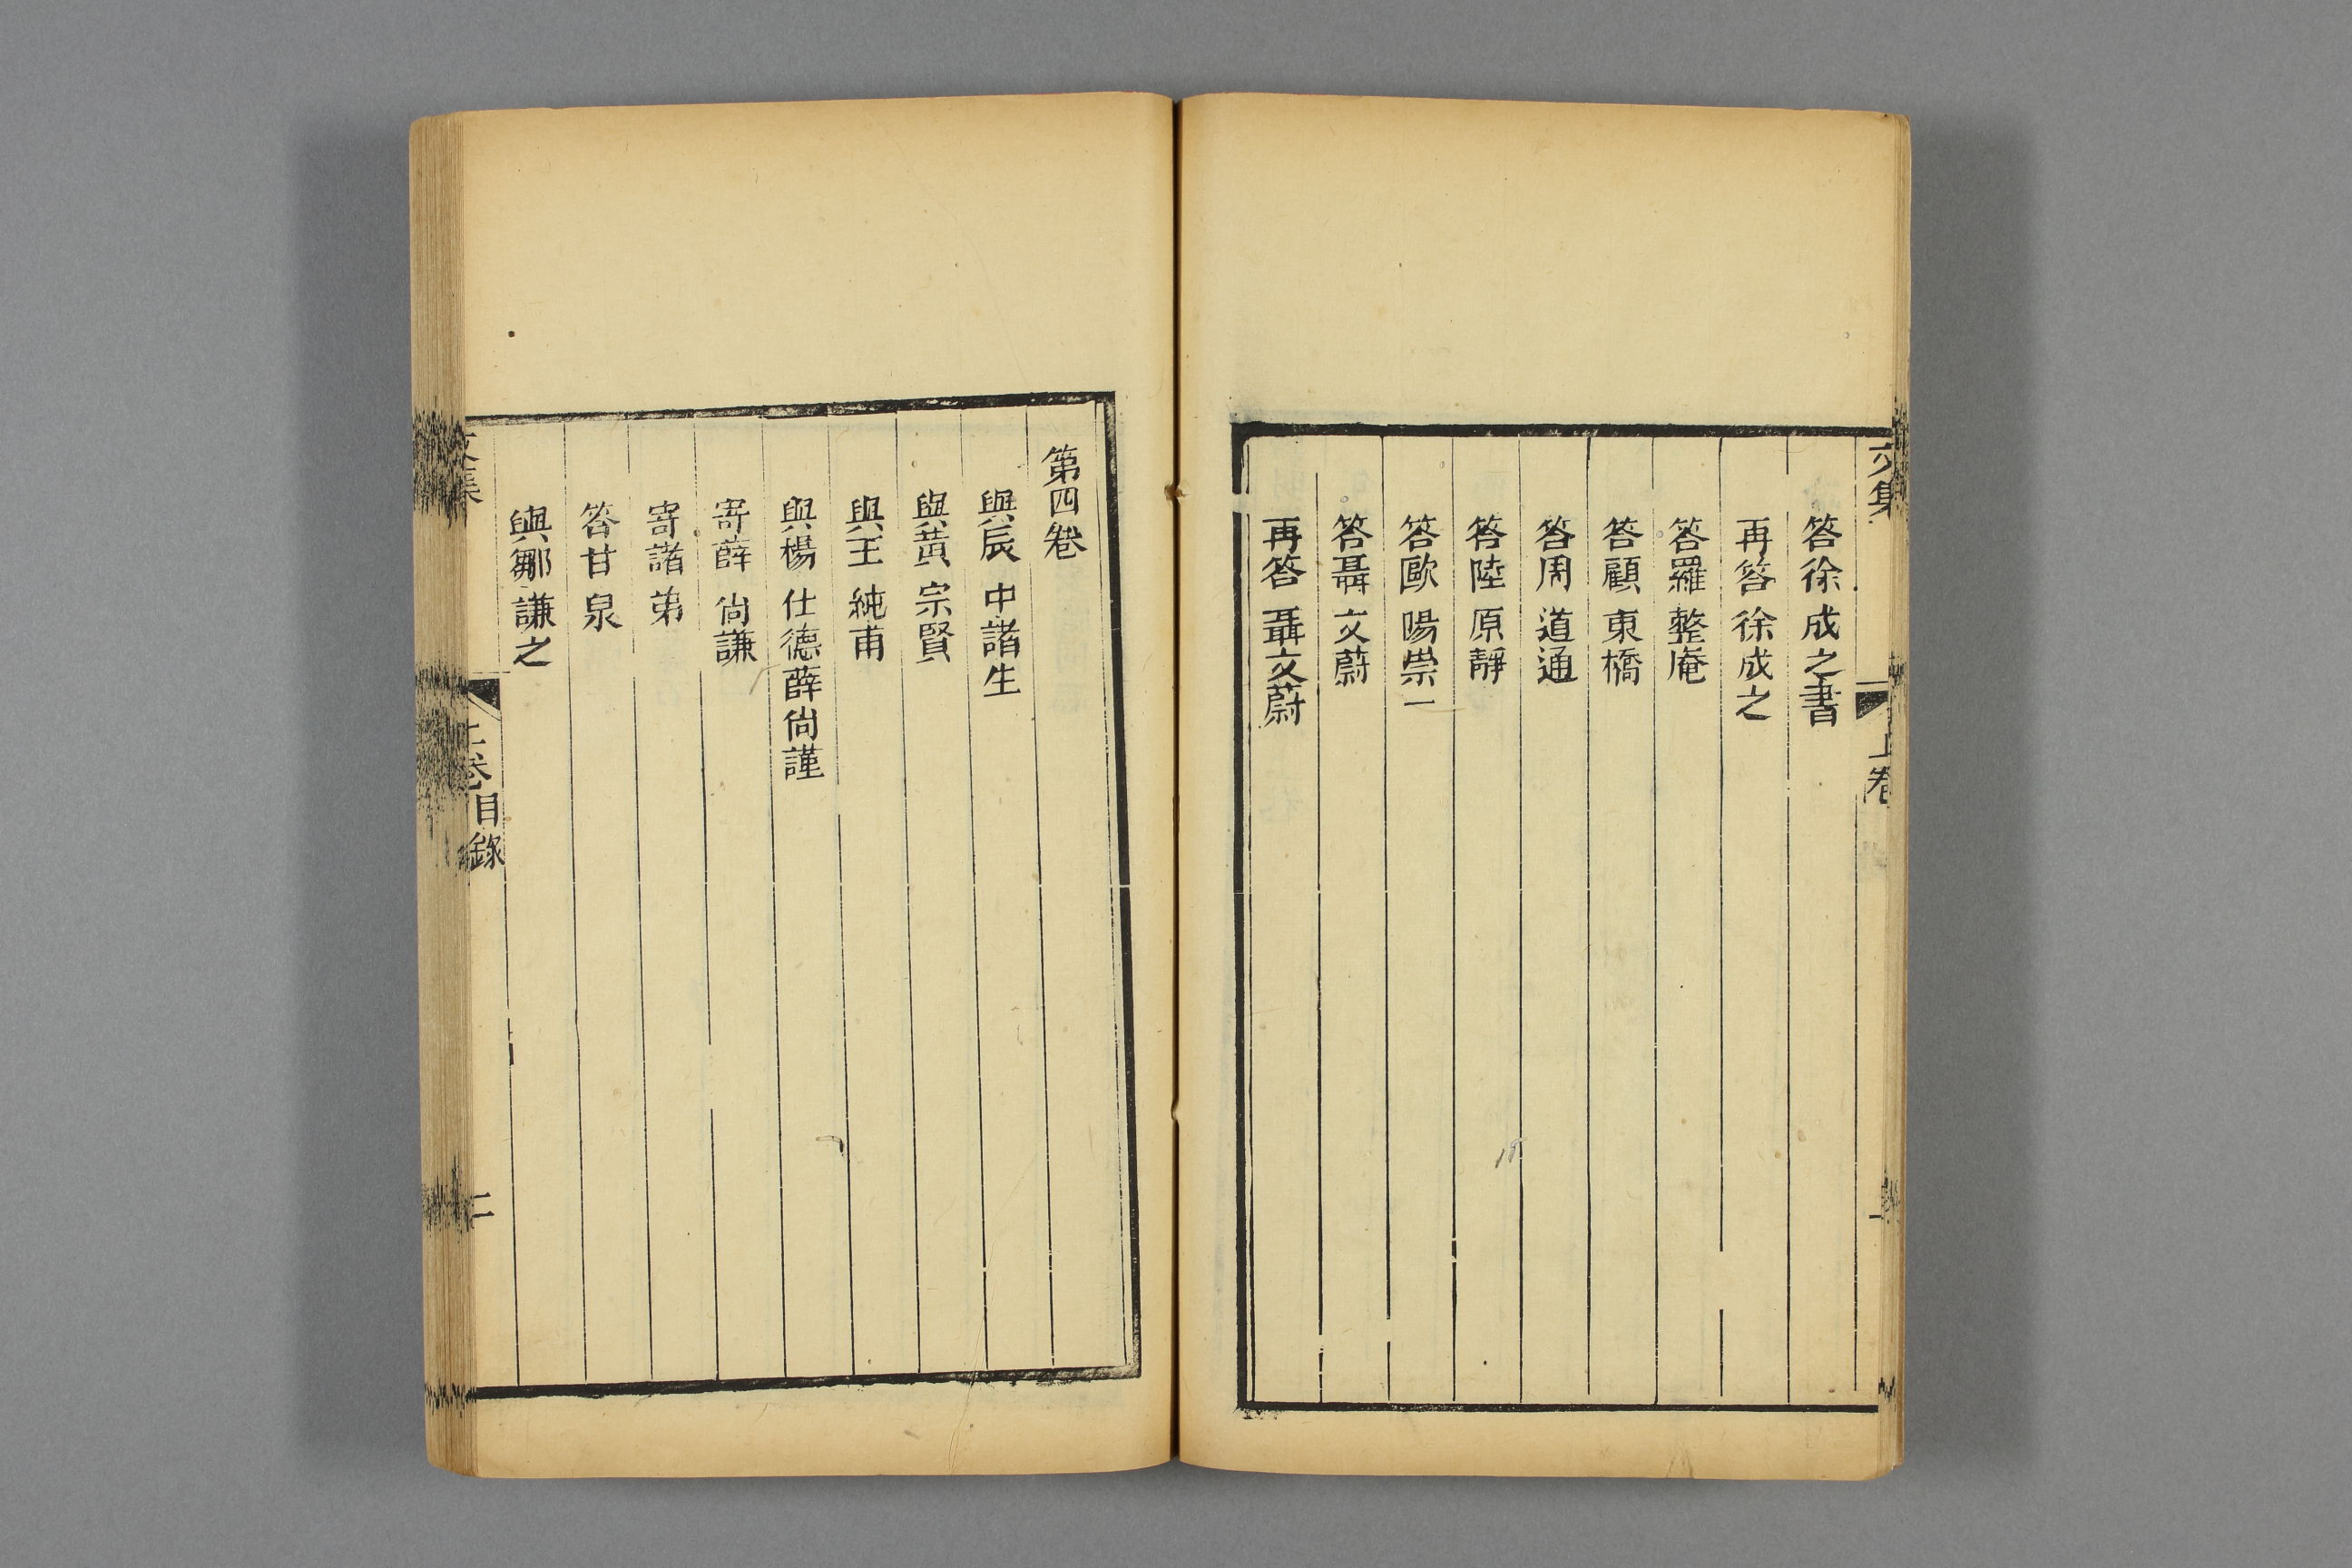 文集
上卷
一
答徐成之書
再答徐成之
答羅整庵
答顧東橋
答周道通
答陸原靜
答歐陽崇一
答聶文蔚
再答聶文蔚
第四卷
與辰中諸生
與黃宗賢
與王純甫
與楊仕德薛尙謹
寄薛尙謙
寄諸弟
答甘泉
與鄒謙之
文集
上卷目錄
二